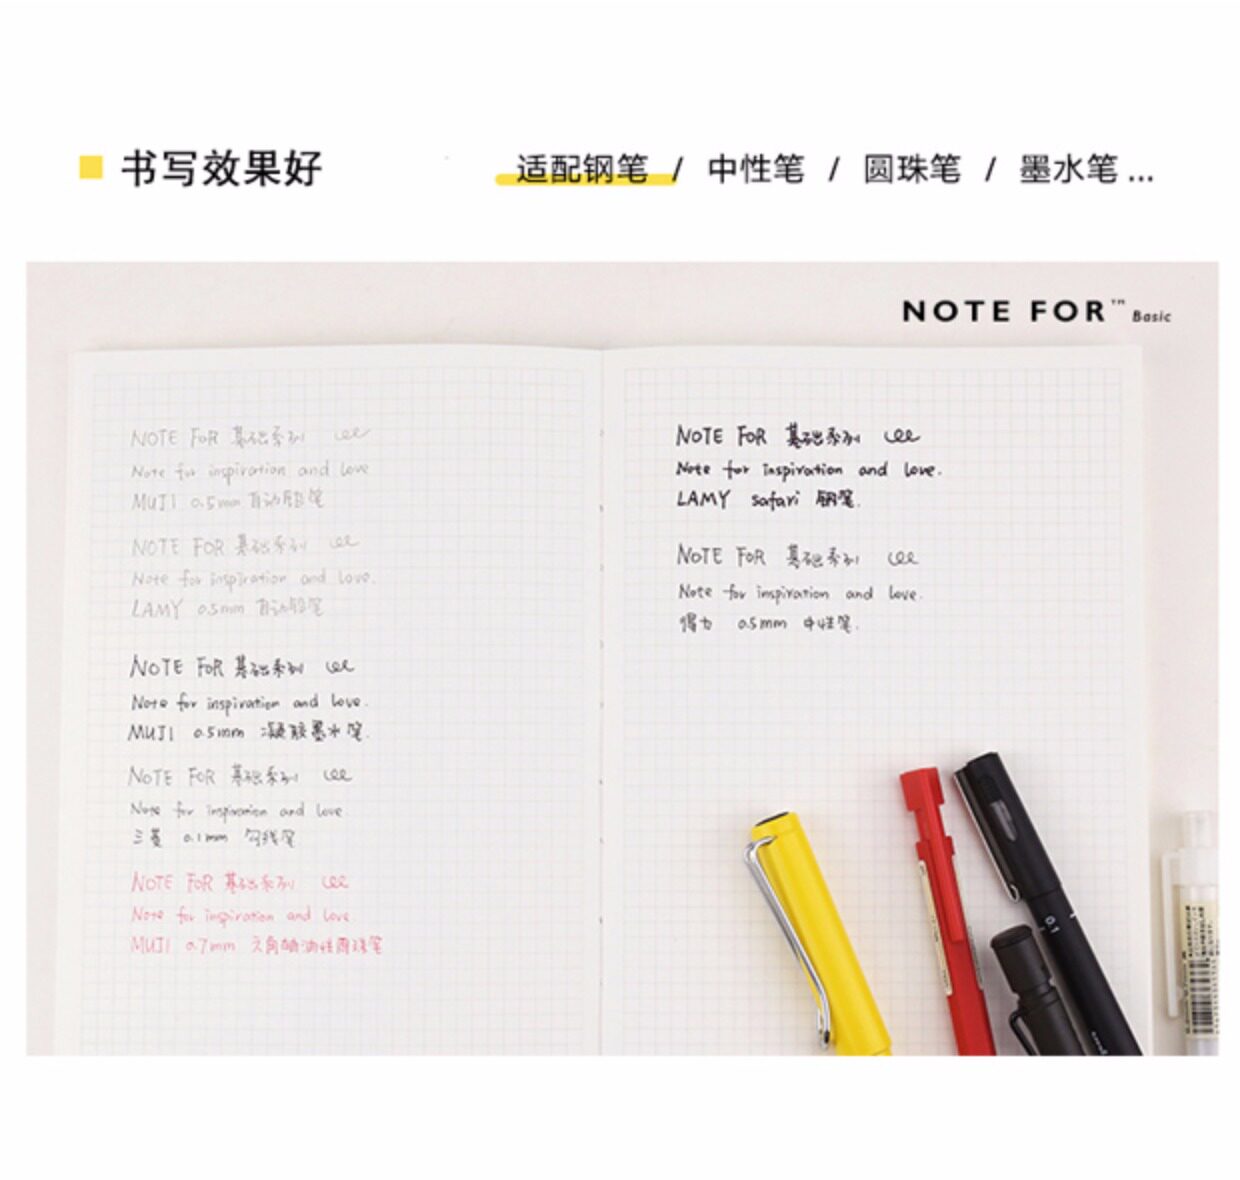 书写效果好
适配钢笔 / 中性笔 / 圆珠笔 / 墨水笔...
NOTE FOR™ Basic
NOTE FOR 基础系列
Note for inspiration and love
MUJI 0.5mm 自动铅笔
NOTE FOR 基础系列
Note for inspiration and love.
LAMY 0.5mm 自动铅笔
NOTE FOR 基础系列
Note for inspiration and love.
MUJI 0.5mm 凝胶墨水笔.
NOTE FOR 基础系列
Note for inspiration and love.
三菱 0.1mm 勾线笔
NOTE FOR 基础系列
Note for inspiration and love.
MUJI 0.7mm 六角轴油性圆珠笔
NOTE FOR 基础系列
Note for inspiration and love.
LAMY safari 钢笔.
NOTE FOR 基础系列
Note for inspiration and love.
得力 0.5mm 中性笔.
0.1